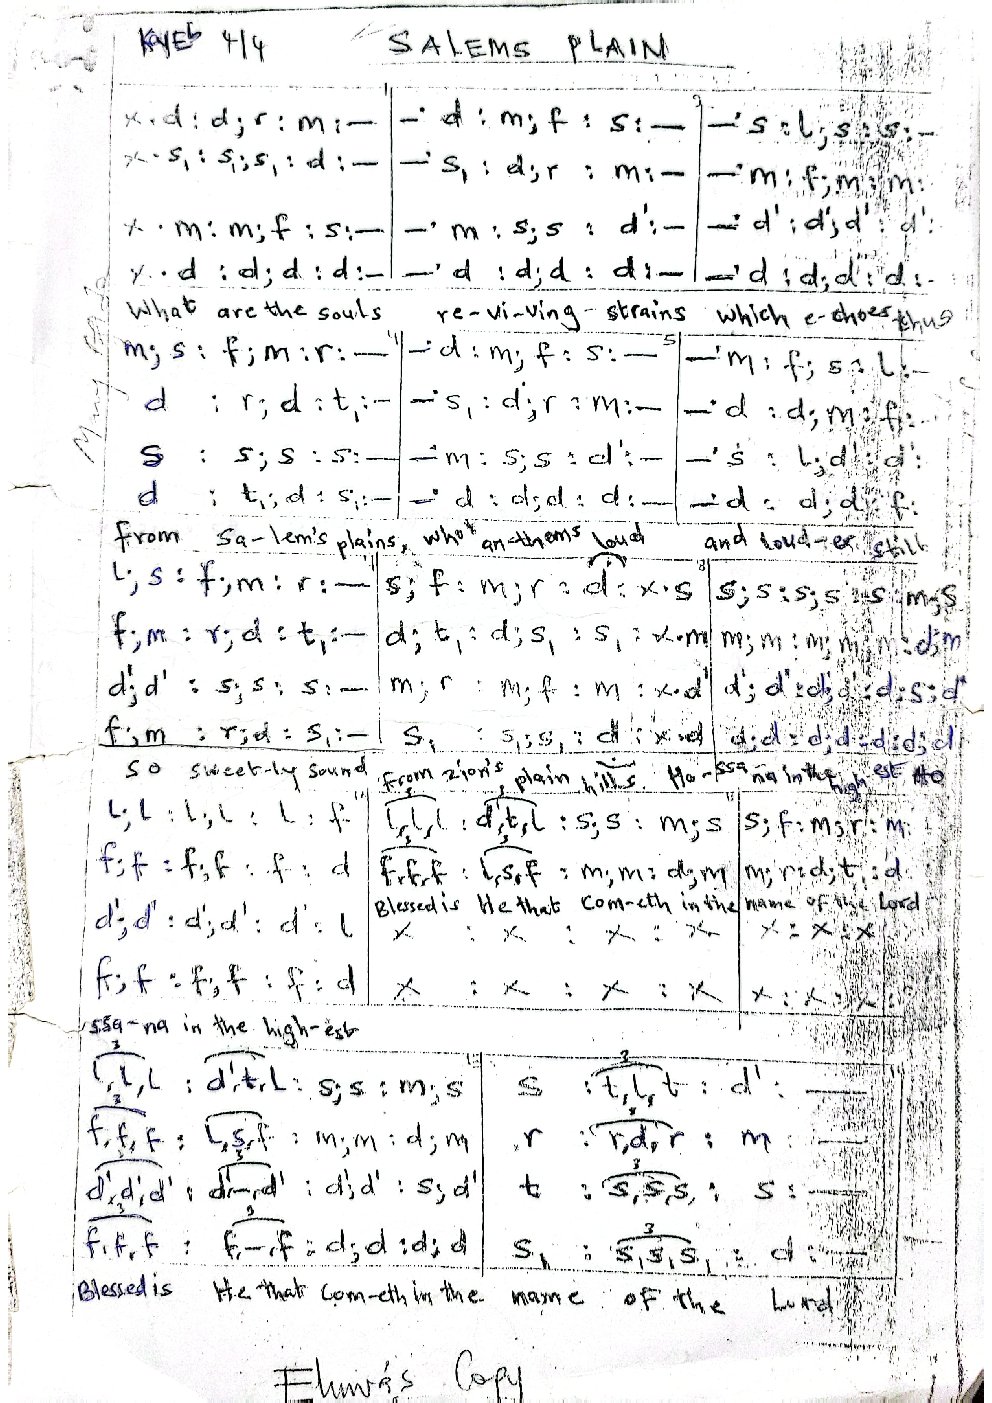 Key Eb 4/4 SALEMS PLAIN
x . d : d ; r : m : — | — . d : m ; f : s : — | — . s : l ; s : s : —
x . s₁ : s₁ ; s₁ : d : — | — . s₁ : d ; r : m : — | — . m : f ; m : m :
x . m : m ; f : s : — | — . m : s ; s : d' : — | — . d' : d' ; d' : d' :
x . d : d ; d : d : — | — . d : d ; d : d : — | — . d : d ; d : d : -
What are the souls re-vi-ving- strains which e-choes thus
m ; s : f ; m : r : — | — . d : m ; f : s : — | — . m : f ; s : l : -
d : r ; d : t₁ : — | — . s₁ : d ; r : m : — | — . d : d ; m : f :
s : s ; s : s : — | — . m : s ; s : d' : — | — . s : l ; d' : d' :
d : t₁ ; d : s₁ : — | — . d : d ; d : d : — | — . d : d ; d : f :
from Sa-lem's plains, what an-thems loud and loud-er still
l ; s : f ; m : r : — | s ; f : m ; r : d : x . s | s ; s : s ; s : s : m ; s
f ; m : r ; d : t₁ : — | d ; t₁ : d ; s₁ : s₁ : x . m | m ; m : m ; m : m : d ; m
d' ; d' : s ; s : s : — | m ; r : m ; f : m : x . d' | d' ; d' : d' ; d' : d' : s ; d'
f ; m : r ; d : s₁ : — | s₁ : s₁ ; s₁ : d : x . d | d ; d : d ; d : d : d ; d
So sweet-ly sound from zion's plain hills. Ho-ssa na in the high est Ho
l ; l : l ; l : l : f | l , l , l : d' , t , l : s ; s : m ; s | s ; f : m ; r : m :
f ; f : f ; f : f : d | f , f , f : l , s , f : m ; m : d ; m | m ; r : d ; t₁ : d
Blessed is He that Com-eth in the name of the Lord
d' ; d' : d' ; d' : d' : l | x : x : x : x | x : x : x
f ; f : f ; f : f : d | x : x : x : x | x : x : x :
ssa-na in the high-est
l , l , l : d' , t , l : s ; s : m ; s | s : t , l , t : d' : —
f , f , f : l , s , f : m ; m : d ; m | r : r , d , r : m : —
d' , d' , d' : d' , — , d' : d' ; d' : s ; d' | t : s , s , s , : s : —
f , f , f : f , — , f : d ; d : d ; d | s₁ : s₁ s₁ s₁ : d : —
Blessed is He that Com-eth in the name of the Lord
Copy